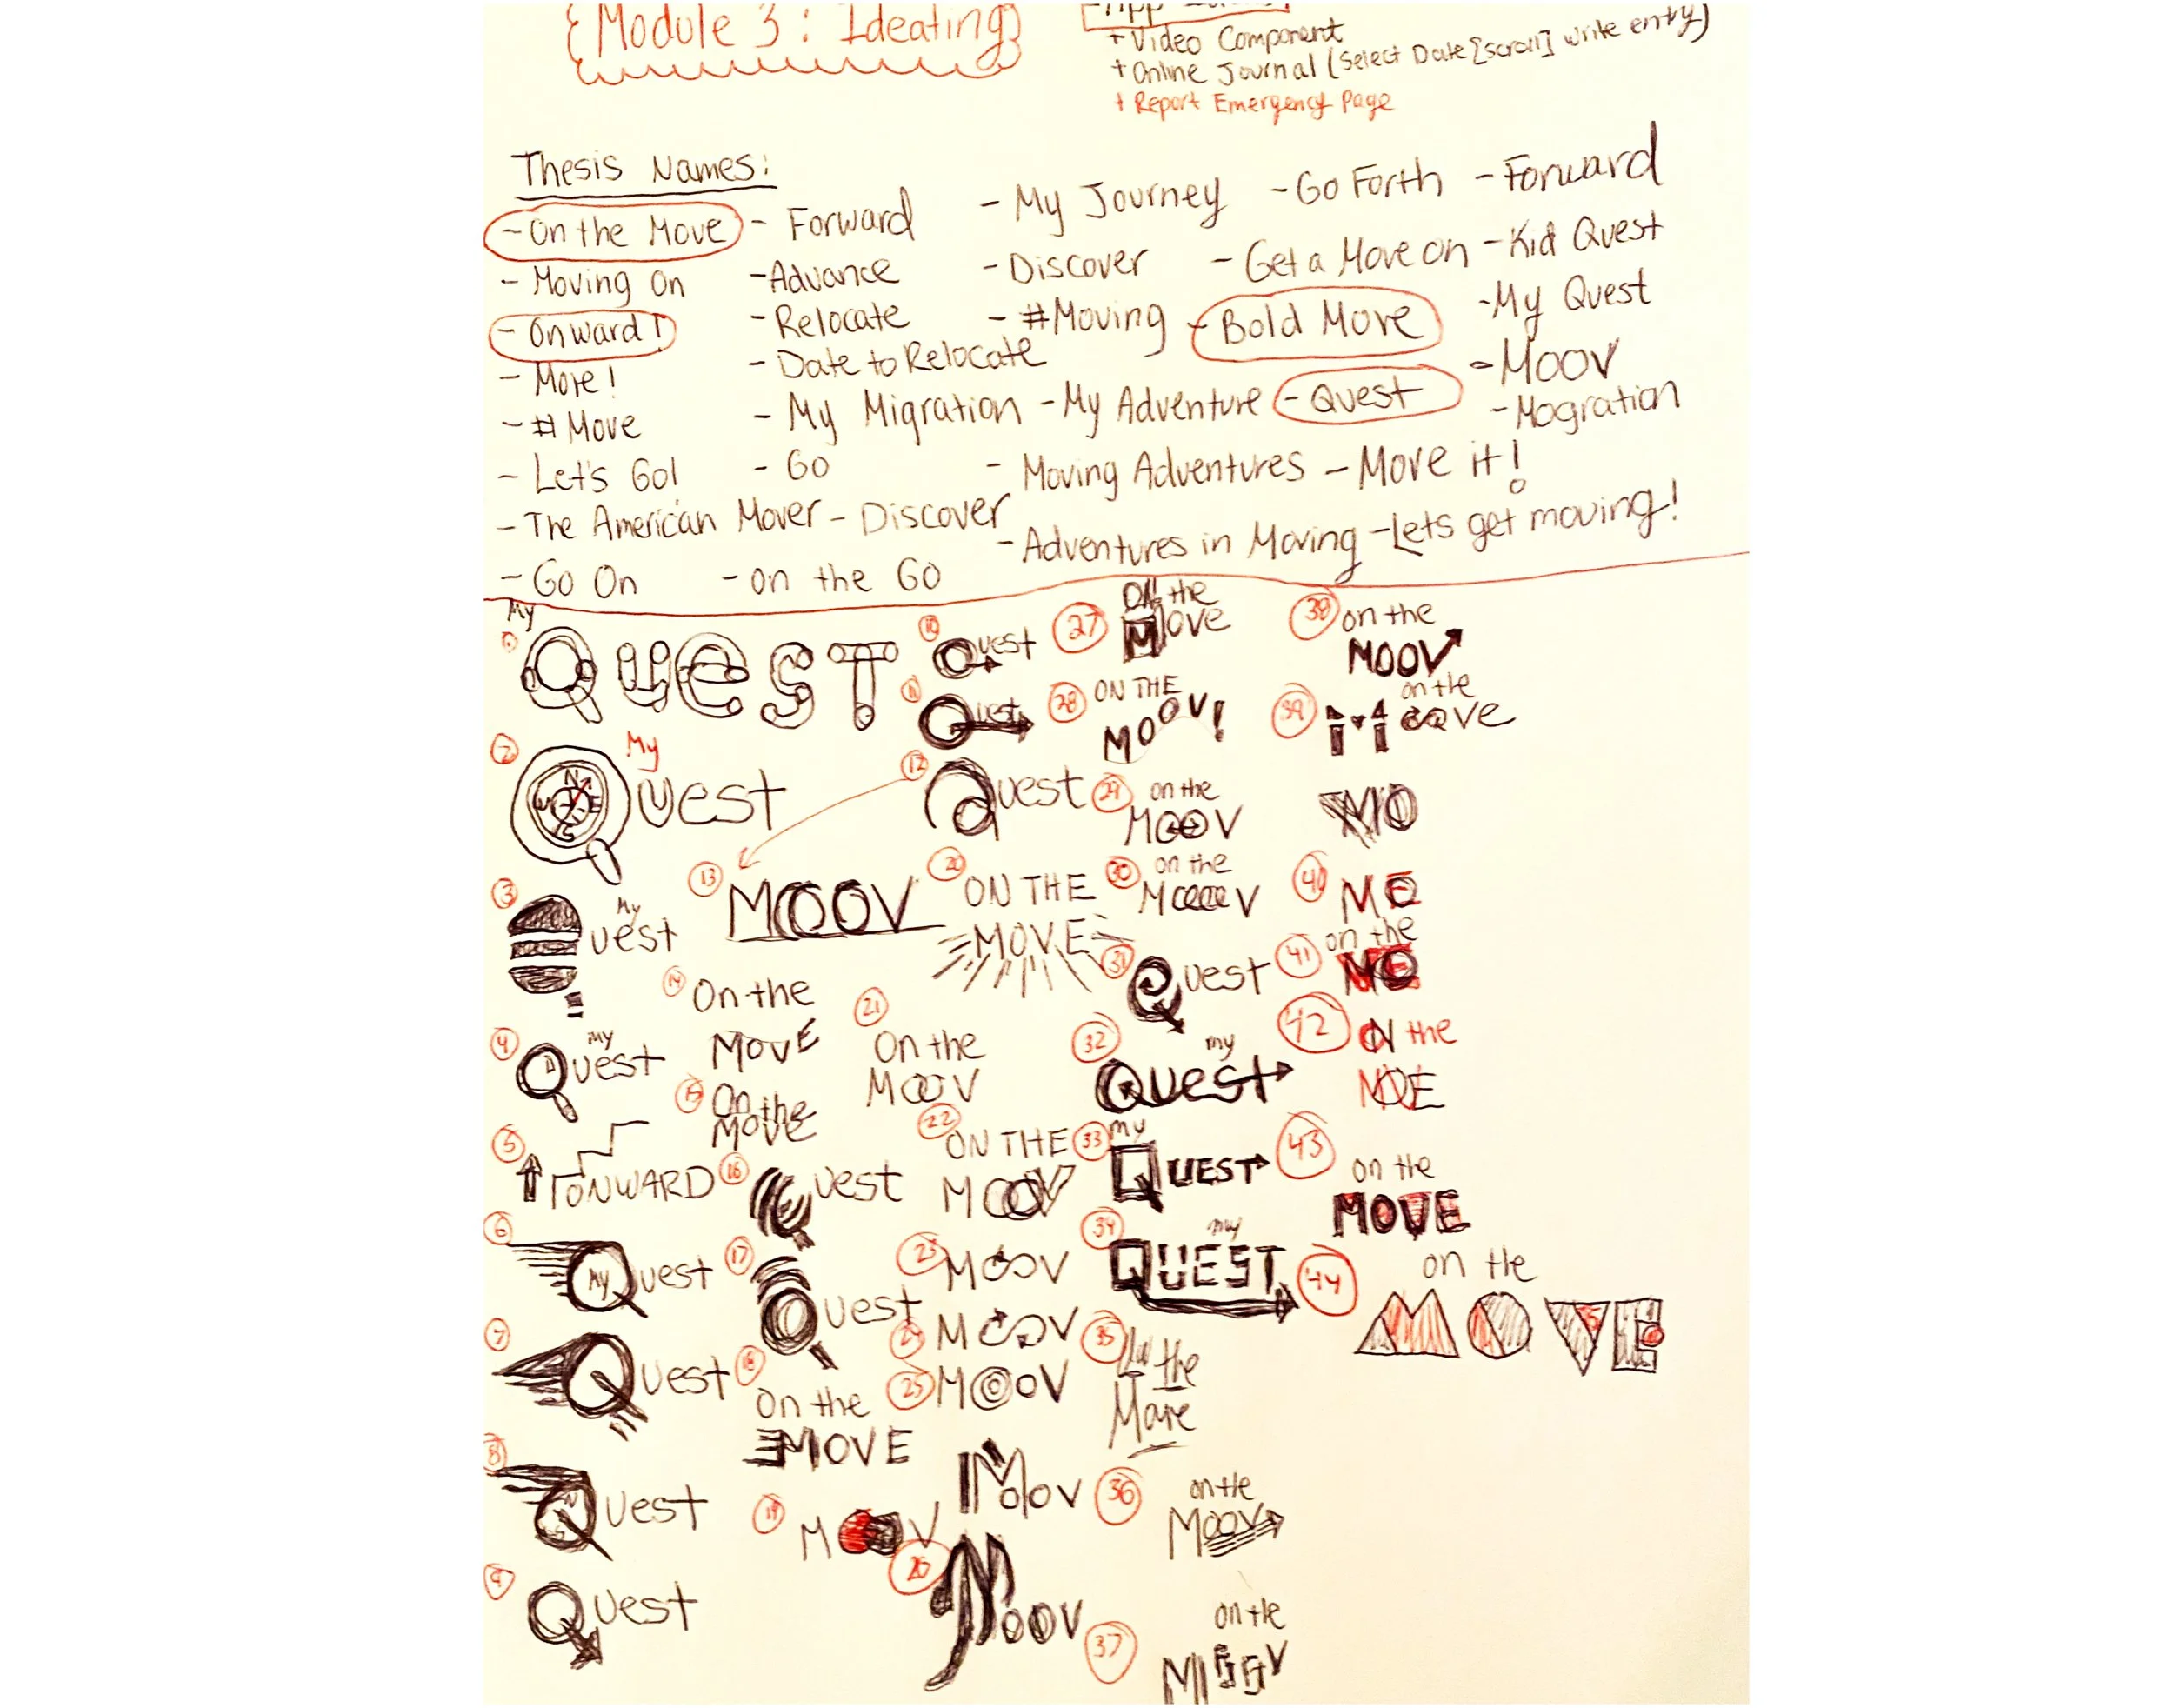 {Module 3: Ideating}
+ Video Component
+ Online Journal (Select Date [scroll] write entry)
+ Report Emergency Page
Thesis Names:
- On the Move - Forward - My Journey - Go Forth - Forward
- Moving On - Advance - Discover - Get a Move on - Kid Quest
- Onward! - Relocate - #Moving - Bold Move - My Quest
- Move! - Date to Relocate - Moov
- # Move - My Migration - My Adventure - Quest - Mogration
- Let's Go! - Go - Moving Adventures - Move it!
- The American Mover - Discover
- Adventures in Moving - Lets get moving!
- Go On - on the Go
My
QUEST
2 My
Quest
3 My
Quest
4 My
Quest
5 ONWARD
6 My Quest
7 Quest
8 Quest
9 Quest
10 Quest
11 Quest
12 Quest
13 MOOV
14 On the
MOVE
15 On the
Move
16 Quest
17 Quest
18 On the
MOVE
19 MOOV
20 ON THE
MOVE
21 On the
MOOV
22 ON THE
MOOV
23 MOOV
24 MOOV
25 MOOV
Moov
26 Moov
27 On the
Move
28 ON THE
MOOV!
29 on the
MOOV
30 on the
MOOOOV
31 Quest
32 my
Quest
33 my
QUEST
34 my
QUEST
35 the
Move
36 on the
Moov
37 on the
38 on the
MOOV
39 on the
Move
MO
40 ME
on the
41
42 ON the
MOE
43 on the
MOVE
44 on the
MOVE